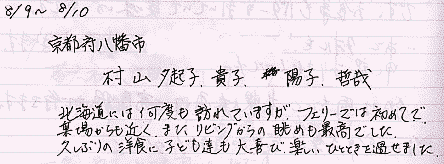 8/9～8/10
京都府八幡市
村山 夕起子、貴子、陽子、哲哉
北海道には何度も訪れていますが、フェリーでは初めてで、
乗場からも近く、また、リビングからの眺めも最高でした。
久しぶりの洋食に子ども達も大喜び、楽しいひとときを過せました。